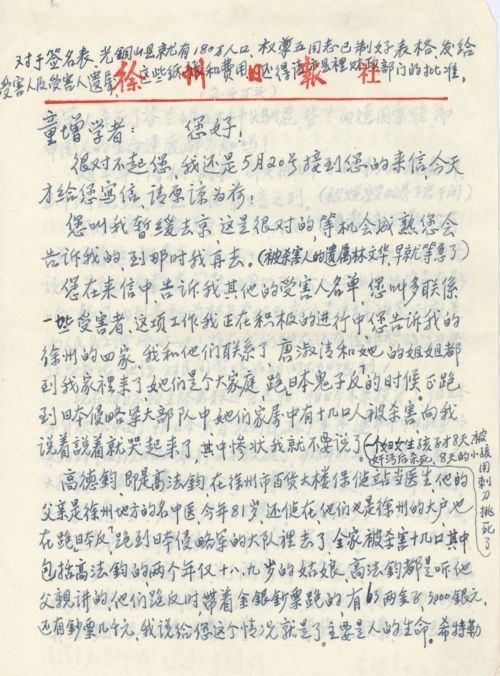 对于签名表,光铜山县就有180万人口,权尊五同志已制好表格发给
受害人及受害人遗属,这些纸张和费用,还得请示县财政部门的批准。
徐州日报社
童增学者: 您好!
很对不起您,我还是5月20号接到您的来信,今天
才给您写信,请原谅为荷!
您叫我暂缓去京,这是很对的,等机会成熟您会
告诉我的,到那时我再去。(被杀害人的遗属林文华,早就等急了)
您在来信中,告诉我其他的受害人名单,您叫多联係
一些受害者,这项工作我正在积极的进行中,您告诉我的
徐州的四家,我和他们联系了,唐淑清和她的姐姐都
到我家里来了,她们是个大家庭,跑日本鬼子反的时候,正跑
到日本侵略军大部队中,她们家属中有十几口人被杀害,向我
说着説着就哭起来了,其中惨状我就不要说了。(一个妇女生孩子才8天被
奸污后杀死,8天的小孩用刺刀挑死了)
高德钧,即是高法钧,在徐州市百货大楼保健站当医生,他的
父亲是徐州地方的名中医,今年81岁,还健在,他们也是徐州的大户,也
在跑日本反,跑到日本侵略军的大队裡去了,全家被杀害十几口,其中
包括高法钧的两个年仅十八、九岁的姑娘,高法钧都是听他
父親讲的,他们跑反时带着金银钞票跑的,有
还有钞票几千元,我说给您这个情况就是了。主要是人的生命。希特勒